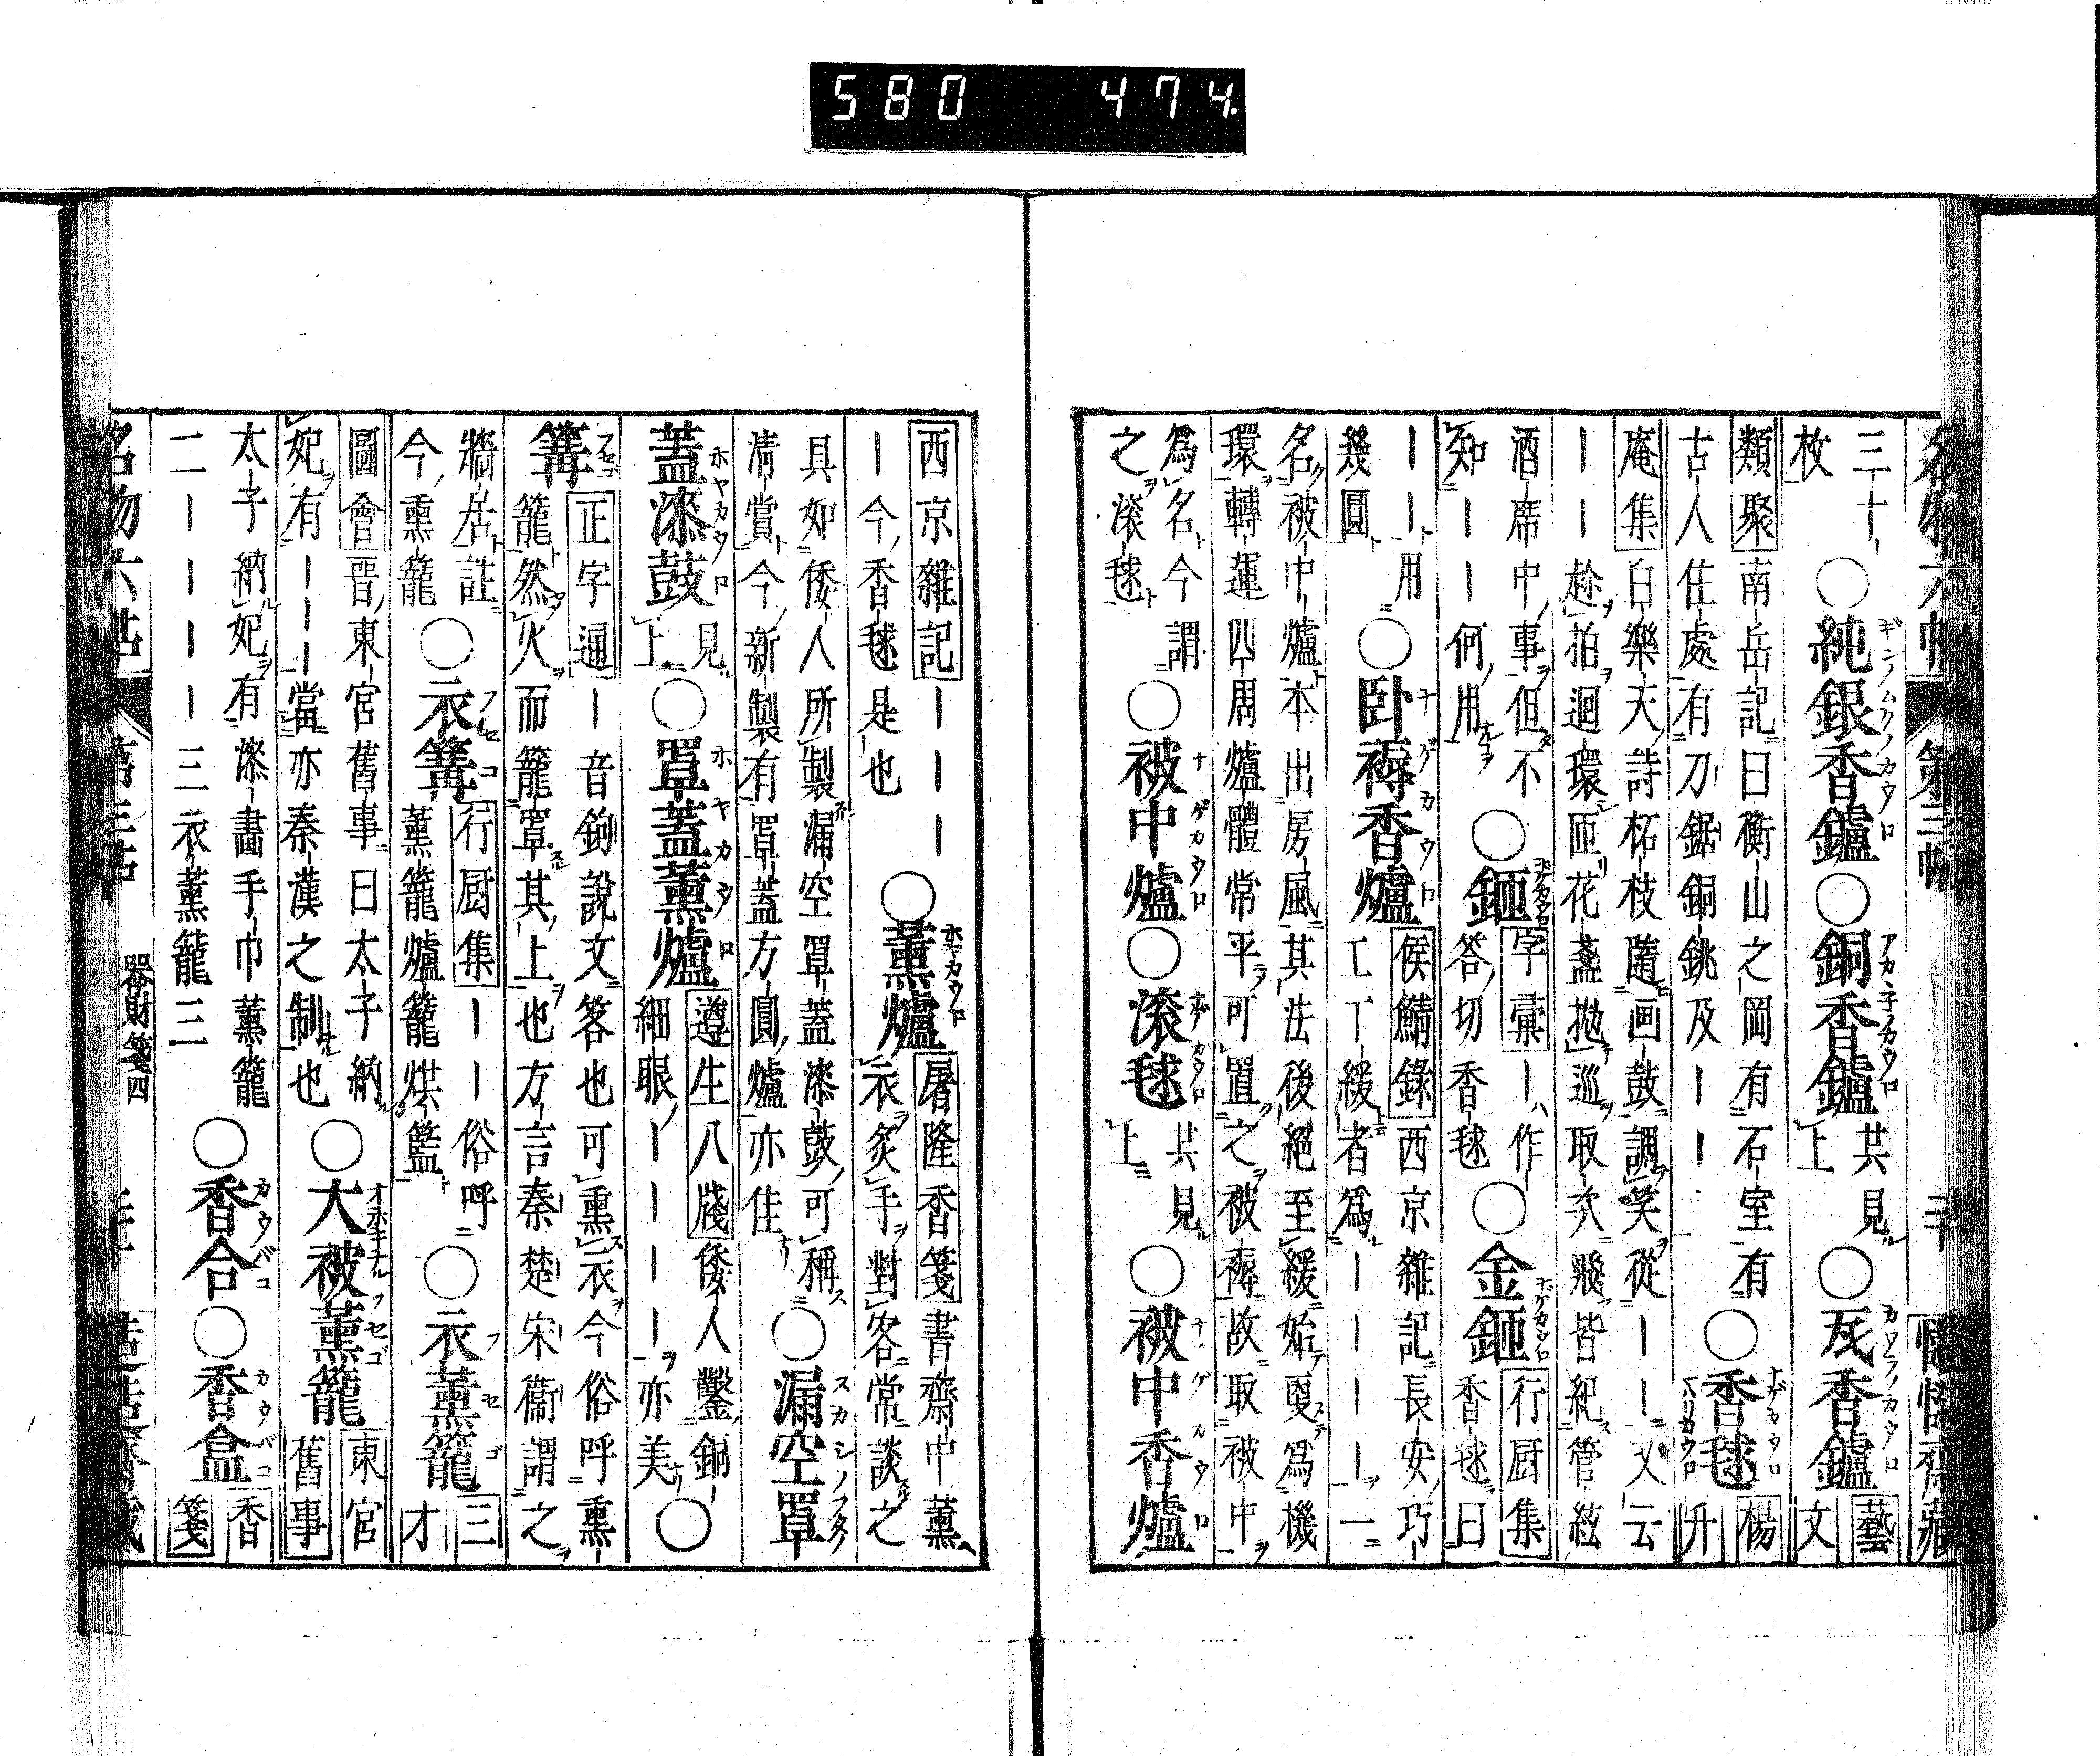 名物六帖 第三帖 二十
三十枚○純銀香鑪○銅香鑪共見上○瓦香鑪藝文
類聚南岳記曰衡山之岡有石室有古人住處有刀鋸銅銚及ーー○香毬楊升
庵集白樂天詩柘枝隨画鼓調笑從ーー又云ーー趁拍迴環匝花盞抛巡取次飛皆紀管絃
酒席中事但不知ーーー何用○鉔字彙ー作答切香毬○金鉔行厨集香毬曰
ーー用幾圓○卧褥香爐侯鯖錄西京雜記長安巧工丁緩者爲ーーーー一
名被中爐本出房風其法後絕至緩始更爲機環轉運四周爐體常平可置之被褥故取被中
爲名今謂之滚毬○被中爐○滚毬共見上○被中香爐
西京雜記ーーーー今香毬是也○薰爐屠隆香箋書齋中薰衣炙手對客常談之
具如倭人所製漏空罩蓋漆鼓可稱清賞今新製有罩蓋方圓爐亦佳○漏空罩
蓋漆鼓見上○罩蓋薰爐遵生八牋倭人鑿銅細眼ーーーー亦美○
篝正字通ー音鉤說文笿也可熏衣今俗呼熏籠然火而籠罩其上也方言秦楚宋衞謂之
牆居註今熏籠○衣篝行厨集ーー俗呼薰籠爐籠烘籃○衣薰籠三才
圖會晋東宮舊事曰太子納妃有ーーー當亦秦漢之制也○大被薰籠東宮舊事
太子納妃有漆畫手巾薰籠二ーーーー三衣薰籠三○香合○香盒香箋
名物六帖 第三帖 器財箋四